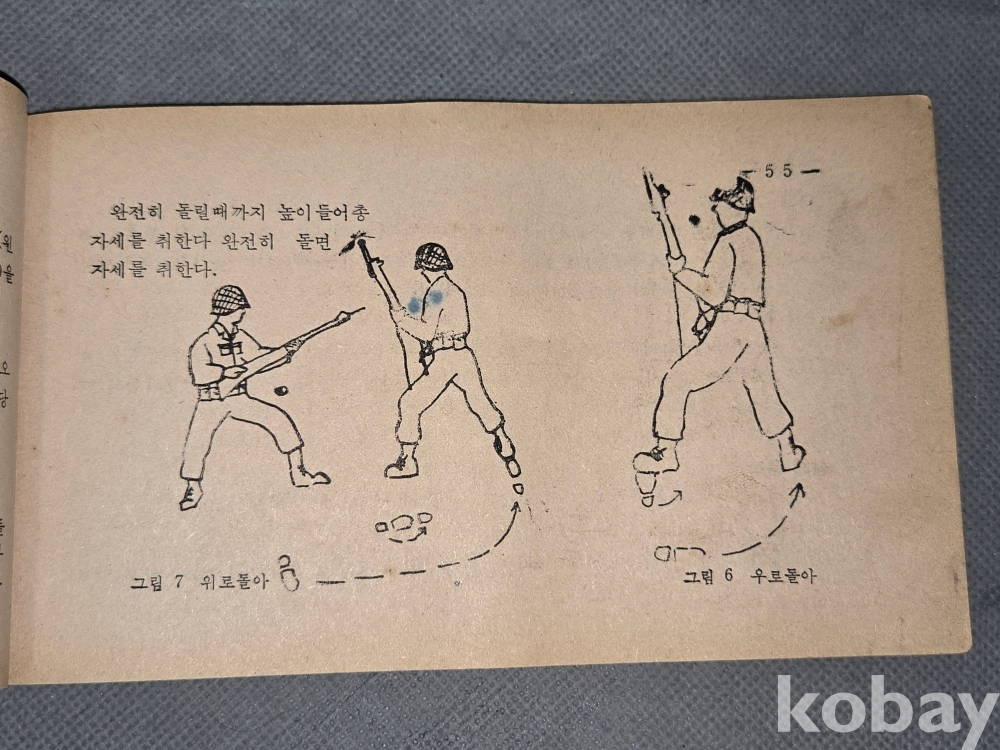 — 55 —
완전히 돌릴때까지 높이들어총
자세를 취한다 완전히 돌면
자세를 취한다.
그림 7 위로돌아
그림 6 우로돌아
원
을
오
당
kobay